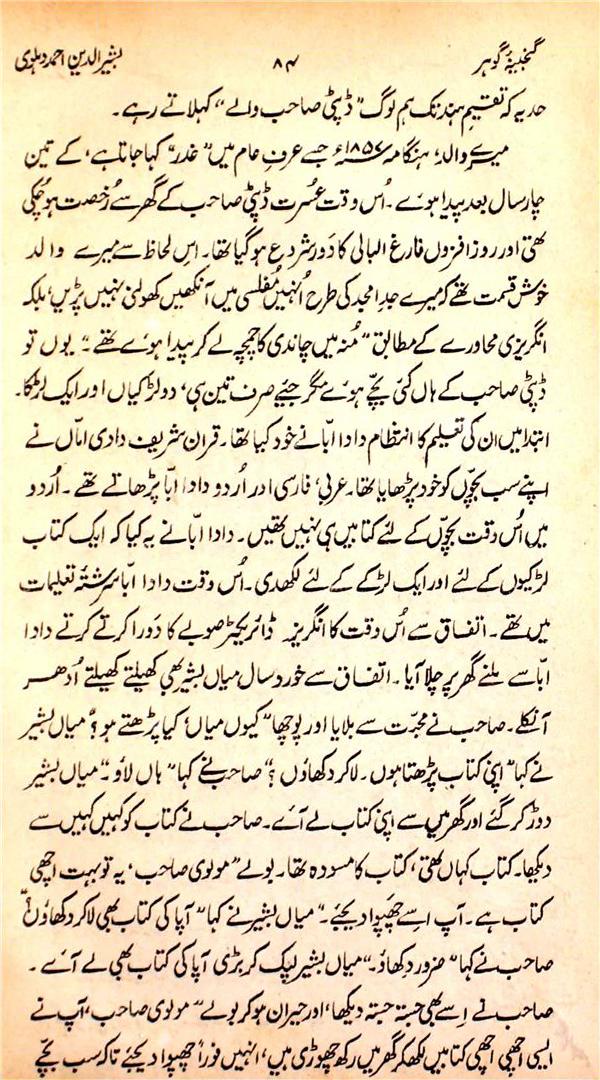 گنجینۂ گوہر ۸۴ بشیر الدین احمد دہلوی
حد یہ کہ تقسیم ہند تک ہم لوگ "ڈپٹی صاحب والے" کہلاتے رہے۔
میرے والد، ہنگامہ ۱۸۵۷ء جسے عرفِ عام میں "غدر" کہا جاتا ہے، کے تین
چار سال بعد پیدا ہوئے۔ اُس وقت عُسرت ڈپٹی صاحب کے گھر سے رُخصت ہو چکی
تھی اور روز افزوں فارغ البالی کا دَور شروع ہو گیا تھا۔ اس لحاظ سے میرے والد
خوش قسمت تھے کہ میرے جدِ امجد کی طرح اُنہیں مُفلسی میں آنکھیں کھولنی نہیں پڑیں، بلکہ
انگریزی محاورے کے مطابق "مُنہ میں چاندی کا چمچہ لے کر پیدا ہوئے تھے۔" یوں تو
ڈپٹی صاحب کے ہاں کئی بچّے ہوئے مگر جئیے صرف تین ہی، دو لڑکیاں اور ایک لڑکا۔
ابتدا میں ان کی تعلیم کا انتظام دادا ابّا نے خود کیا تھا۔ قرآن شریف دادی امّاں نے
اپنے سب بچّوں کو خود پڑھایا تھا۔ عربی، فارسی اور اُردو دادا ابّا پڑھاتے تھے۔ اُردو
میں اُس وقت بچّوں کے لئے کتابیں ہی نہیں تھیں۔ دادا ابّا نے یہ کیا کہ ایک کتاب
لڑکیوں کے لئے اور ایک لڑکے کے لئے لکھدی۔ اُس وقت دادا ابّا سرشتۂ تعلیمات
میں تھے۔ اتفاق سے اُس وقت کا انگریز ڈائریکٹر صوبے کا دَورا کرتے کرتے دادا
ابّا سے ملنے گھر پر چلا آیا۔ اتفاق سے خورد سال میاں بشیر بھی کھیلتے کھیلتے اُدھر
آنکلے۔ صاحب نے محبّت سے بلایا اور پوچھا "کیوں میاں، کیا پڑھتے ہو؟" میاں بشیر
نے کہا "اپنی کتاب پڑھتا ہوں۔ لا کر دکھاؤں؟" صاحب نے کہا "ہاں لاؤ۔" میاں بشیر
دوڑ کر گئے اور گھر میں سے اپنی کتاب لے آئے۔ صاحب نے کتاب کو کہیں کہیں سے
دیکھا۔ کتاب کہاں تھی، کتاب کا مسودہ تھا۔ بولے "مولوی صاحب، یہ تو بہت اچھی
کتاب ہے۔ آپ اسے چھپوا دیجئے۔" میاں بشیر نے کہا "آپا کی کتاب بھی لا کر دکھاؤں؟"
صاحب نے کہا "ضرور دکھاؤ۔" میاں بشیر لپک کر بڑی آپا کی کتاب بھی لے آئے۔
صاحب نے اِسے بھی جستہ جستہ دیکھا، اور حیران ہو کر بولے "مولوی صاحب، آپ نے
ایسی اچھی اچھی کتابیں لکھ کر گھر میں رکھ چھوڑی ہیں، انہیں فوراً چھپوا دیجئے تاکہ سب بچّے